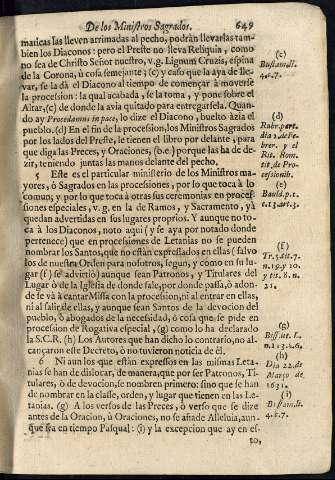 De los Ministros Sagrados. 649
maticas las lleven arrimadas al pecho, podràn llevarlas tam-
bien los Diaconos: pero el Preste no lleva Reliquia, como
no sea de Christo Señor nuestro, v.g. Lignum Crucis, espina
de la Corona, ù cosa semejante; (c) y caso que la aya de lle-
var, se la dà el Diacono al tiempo de començar à moverse
la procession: la qual acabada, se la toma, y pone sobre el
Altar, (c) de donde la avia quitado para entregarsela. Quan-
do ay Procedamus in pace, lo dize el Diacono, buelto àzia el
pueblo. (d) En el fin de la procession, los Ministros Sagrados
por los lados del Preste, le tienen el libro por delante, para
que diga las Preces, y Oraciones, (b. e) porque las ha de de-
zir, teniendo juntas las manos delante del pecho.
5 Este es el particular ministerio de los Ministros ma-
yores, ò Sagrados en las processiones, por lo que toca à lo
comun; y por lo que toca à otras sus ceremonias en proces-
siones especiales, v.g. en la de Ramos, y Sacramento, yà
quedan advertidas en sus lugares proprios. Y aunque no to-
ca à los Diaconos, noto aqui (y se aya por notado donde
pertenece) que en processiones de Letanias no se pueden
nombrar los Santos, que no estàn expressados en ellas (salvo
los de nuestra Orden para nosotros, segun, y como en su lu-
gar (f) se advirtiò) aunque sean Patronos, y Titulares del
Lugar ò de la Iglesia de donde sale, por donde passa, ò adon-
de se và à cantar Missa con la procession, ni al entrar en ellas,
ni al salir de ellas, y aunque sean Santos de la devocion del
pueblo, ò abogados de la necessidad, ò cosa que se pide en
procession de Rogativa especial, (g) como lo ha declarado
la S.C.R. (h) Los Autores que han dicho lo contrario, no al-
cançaron este Decreto, ò no tuvieron noticia de èl.
6 Ni aun los que estàn expressos en las mismas Leta-
nias se han de dislocar, de manera, que por ser Patronos, Ti-
tulares, ò de devocion, se nombren primero: sino que se han
de nombrar en la clase, orden, y lugar que tienen en las Le-
tanias. (g) A los versos de las Preces, ò verso que se dize
antes de la Oracion, ù Oraciones, no se añade Alleluia, aun-
que sea en tiempo Pasqual: (i) y la excepcion que ay en es-
to,
(c)
4.c.7.
(d)
Rubr. part.
dia 2. de Fe-
brer. y el
Rit. Rom.
tit. de Pro-
cessionib.
(e)
Bauld. p.1.
(f)
n.19. y 20.
y tit. 8. n.
21.
(g)
(h)
Dia 22. de
Março de
1631.
(i)
4.c.7.